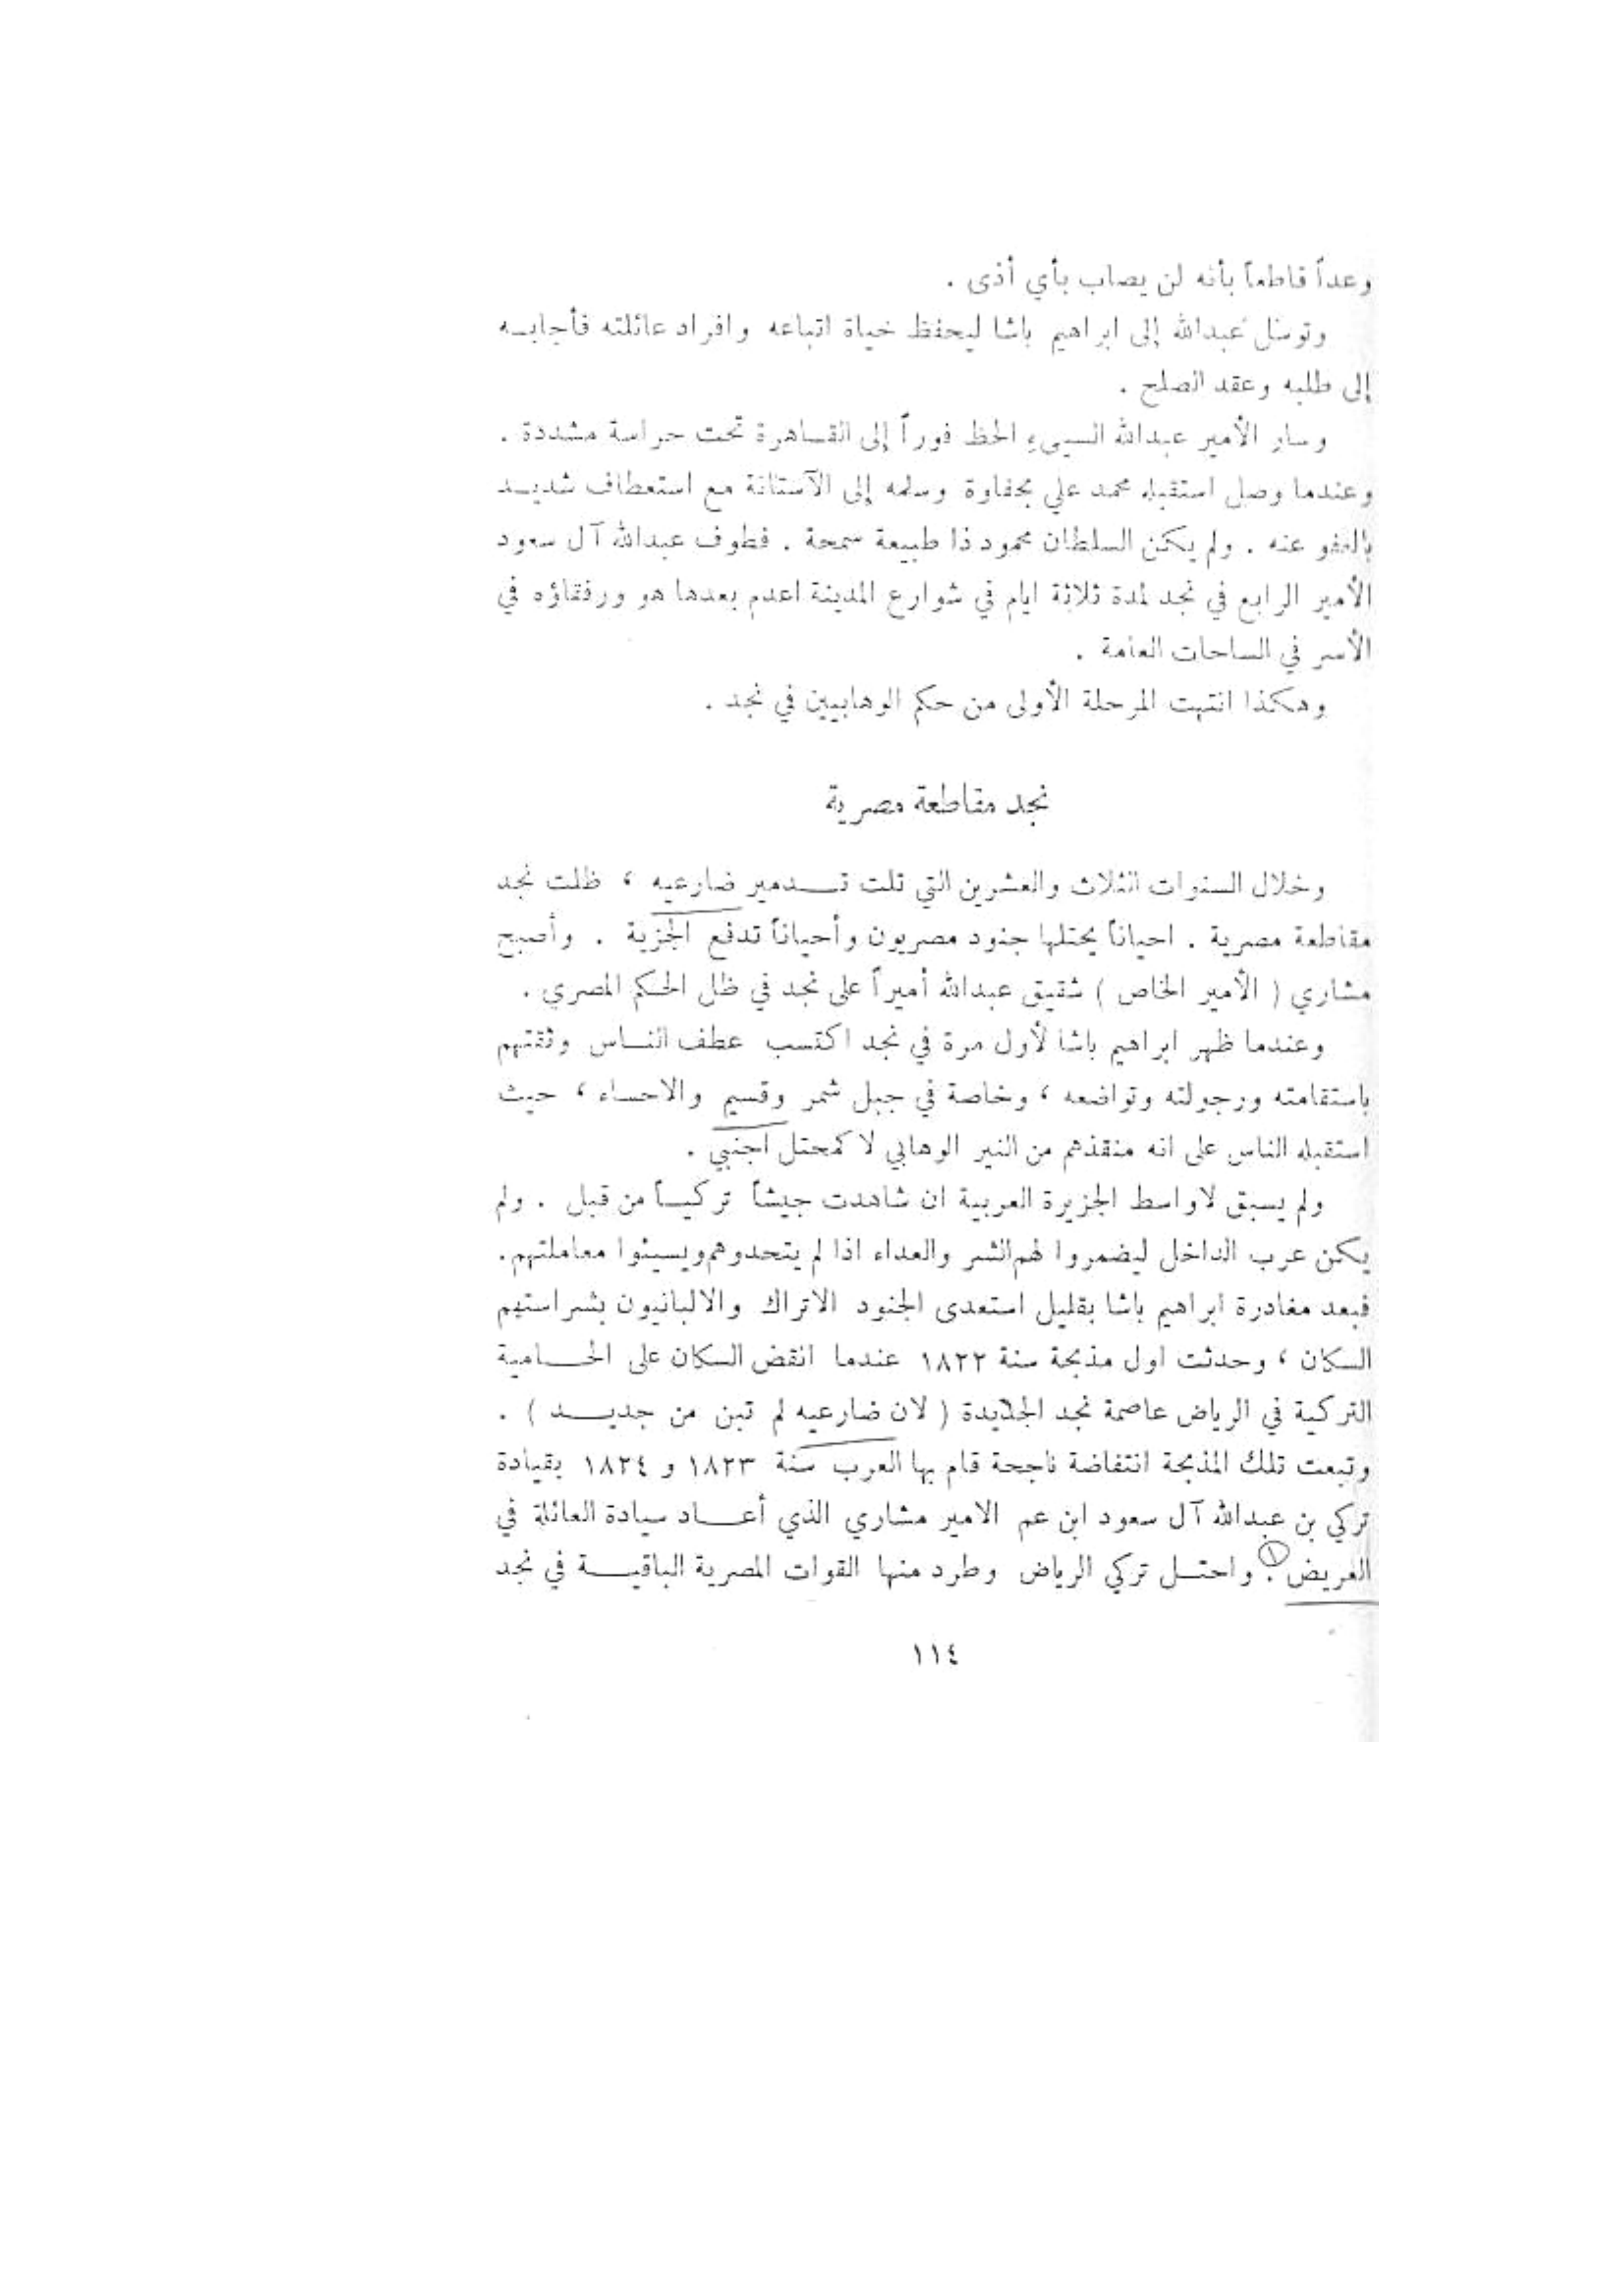 وعداً قاطعاً بأنه لن يصاب بأي أذى .
وتوسل عبدالله إلى ابراهيم باشا ليحفظ حياة اتباعه وافراد عائلته فأجابـه
إلى طلبه وعقد الصلح .
وسار الأمير عبدالله السيىء الحظ فوراً إلى القـاهرة تحت حراسة مشددة .
وعندما وصل استقبله محمد علي بحفاوة وسلمه إلى الآستانة مع استعطاف شديـد
بالعفو عنه . ولم يكن السلطان محمود ذا طبيعة سمحة . فطوف عبدالله آل سعود
الأمير الرابع في نجد لمدة ثلاثة ايام في شوارع المدينة اعدم بعدها هو ورفقاؤه في
الأسر في الساحات العامة .
وهكذا انتهت المرحلة الأولى من حكم الوهابيين في نجد .
نجد مقاطعة مصرية
وخلال السنوات الثلاث والعشرين التي تلت تـدمير ضارعيه ، ظلت نجد
مقاطعة مصرية . احياناً يحتلها جنود مصريون وأحياناً تدفع الجزية . وأصبح
مشاري ( الأمير الخاص ) شقيق عبدالله أميراً على نجد في ظل الحكم المصري .
وعندما ظهر ابراهيم باشا لأول مرة في نجد اكتسب عطف النـاس وثقتهم
باستقامته ورجولته وتواضعه ، وخاصة في جبل شمر وقسيم والاحساء ، حيث
استقبله الناس على انه منقذهم من النير الوهابي لا كمحتل اجنبي .
ولم يسبق لاواسط الجزيرة العربية ان شاهدت جيشاً تركيـاً من قبل . ولم
يكن عرب الداخل ليضمروا لهم الشر والعداء اذا لم يتحدوهم ويسيئوا معاملتهم.
فبعد مغادرة ابراهيم باشا بقليل استعدى الجنود الاتراك والالبانيون بشراستهم
السكان ، وحدثت اول مذبحة سنة ١٨٢٢ عندما انقض السكان على الحـامية
التركية في الرياض عاصمة نجد الجديدة ( لان ضارعيه لم تبن من جديـد ) .
وتبعت تلك المذبحة انتفاضة ناجحة قام بها العرب سنة ١٨٢٣ و ١٨٢٤ بقيادة
تركي بن عبدالله آل سعود ابن عم الامير مشاري الذي أعـاد سيادة العائلة في
العريض (١). واحتـل تركي الرياض وطرد منها القوات المصرية الباقيـة في نجد
١١٤